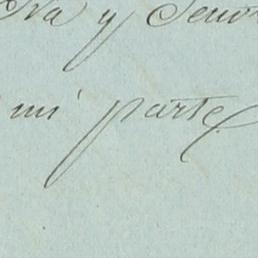 y Seño
mi parte